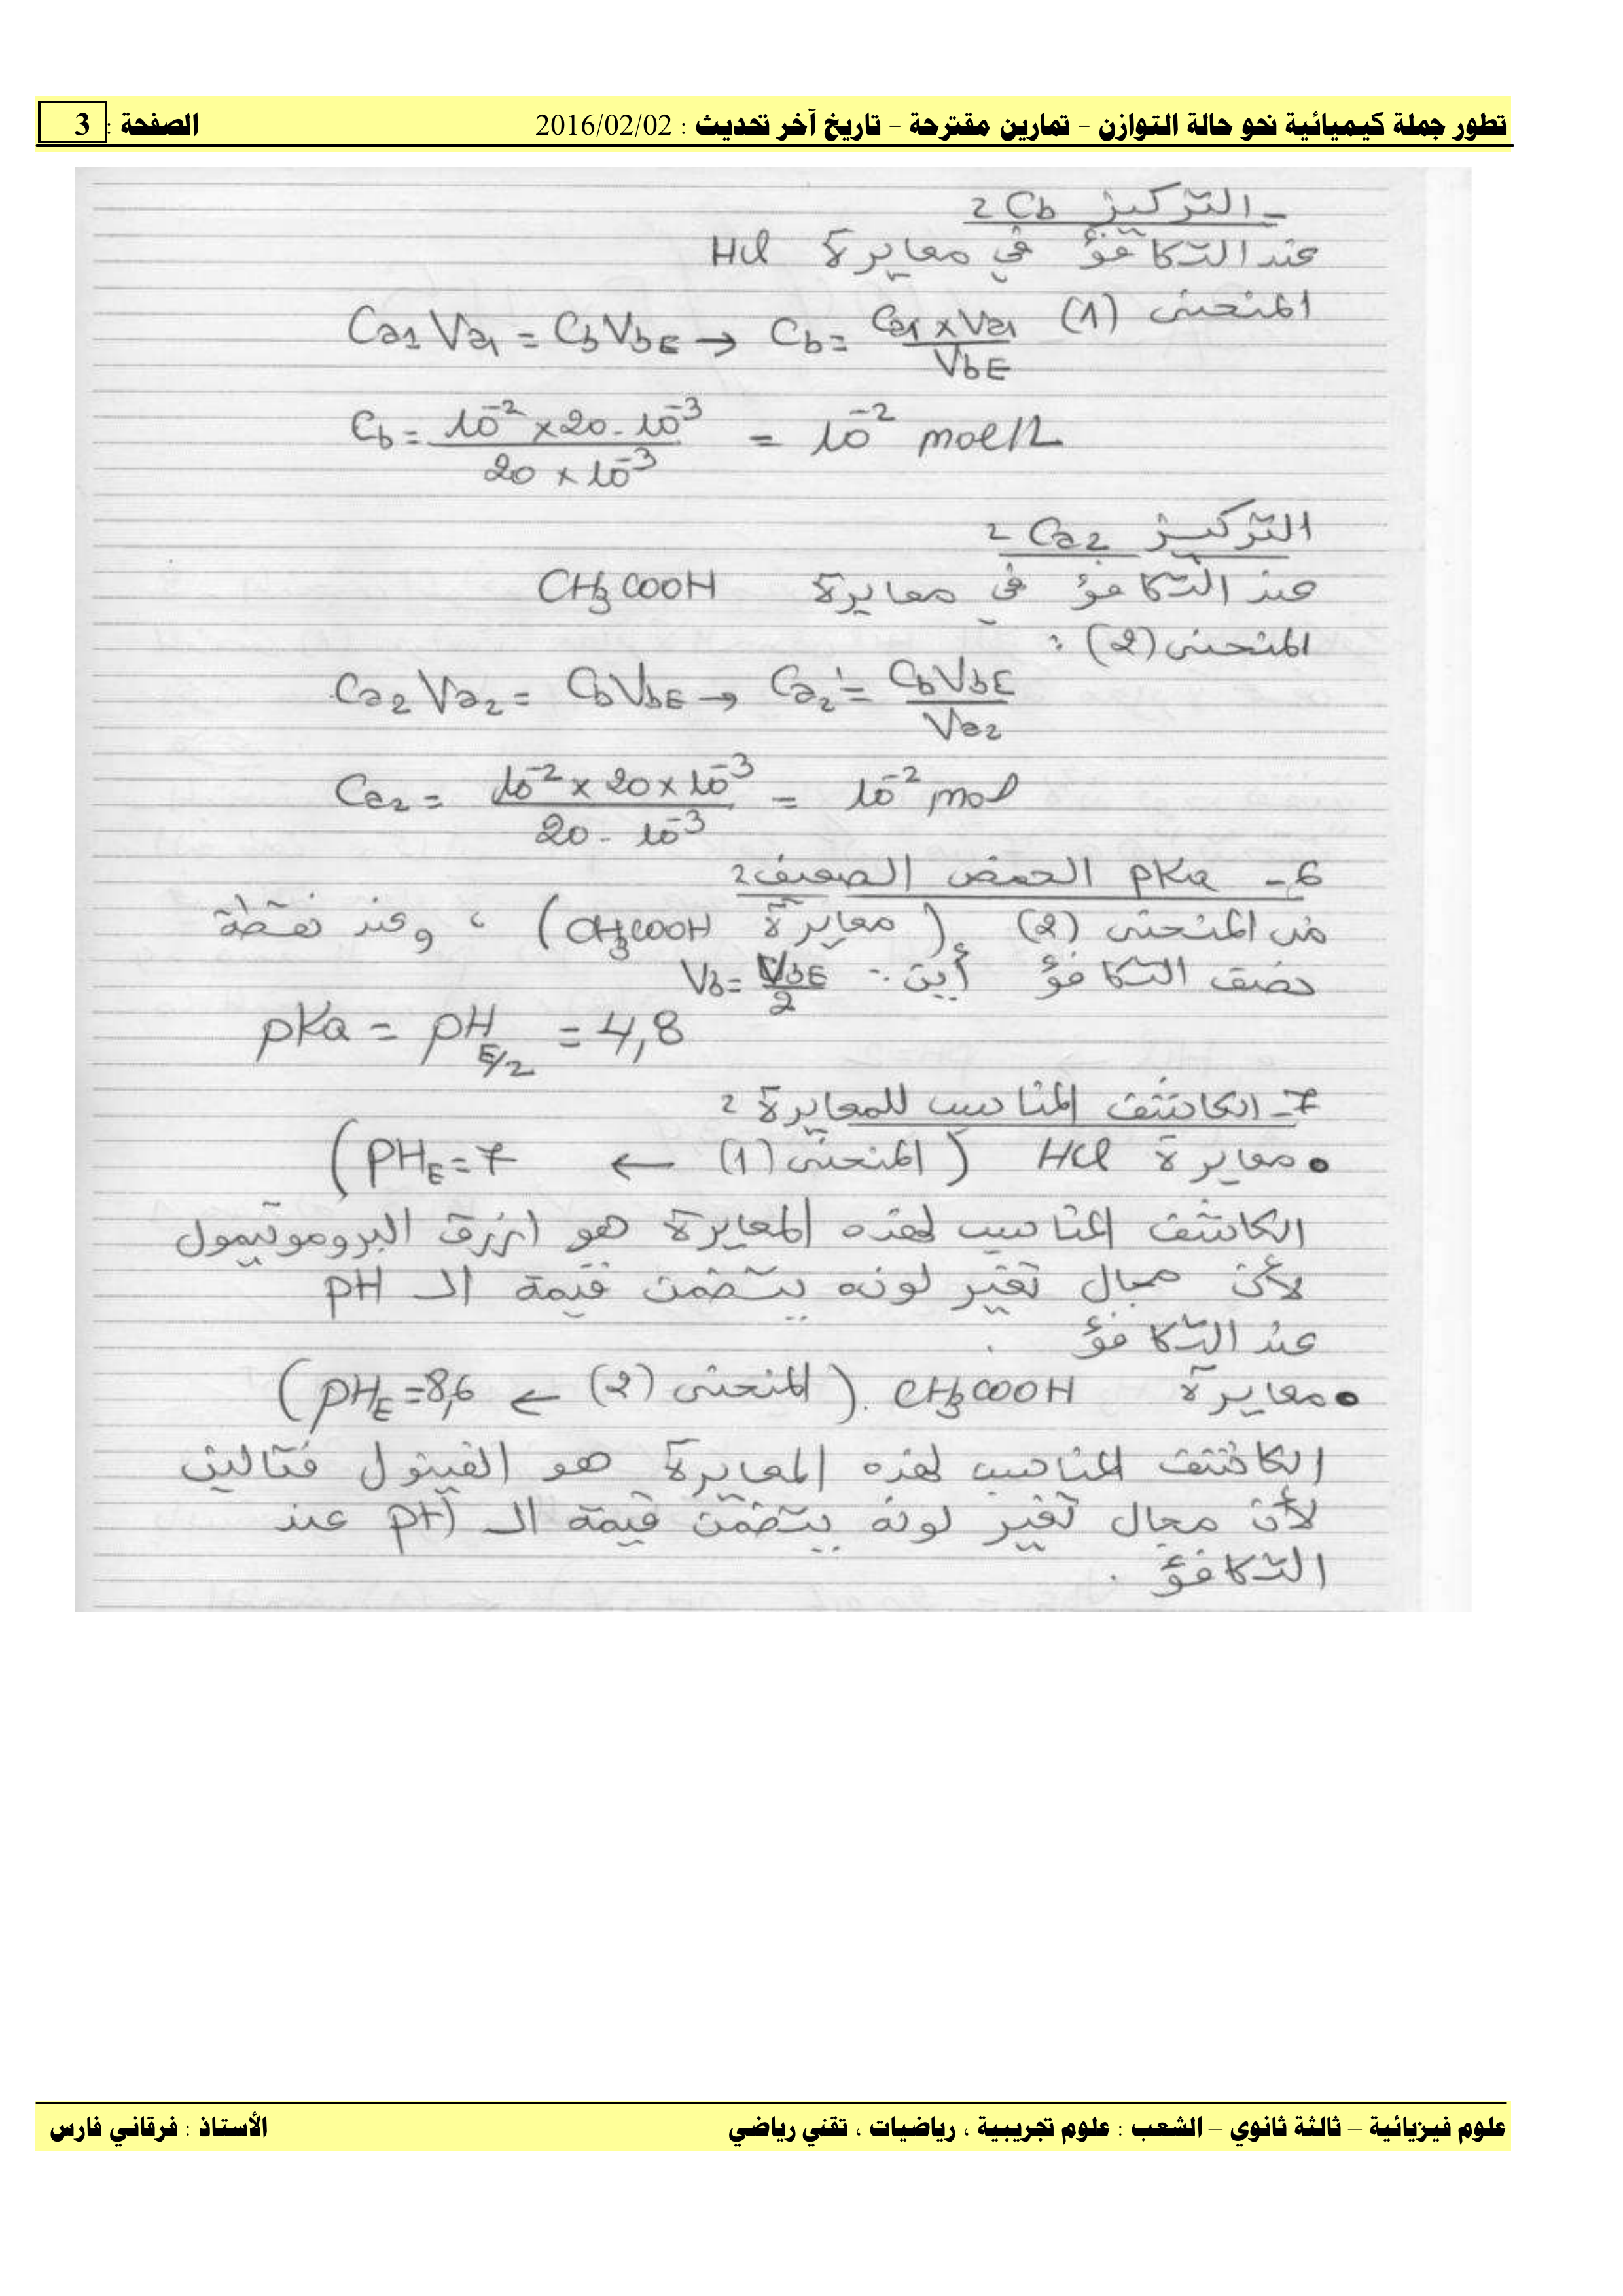 تطور جملة كيميائية نحو حالة التوازن - تمارين مقترحة - تاريخ آخر تحديث : 2016/02/02 الصفحة : 3
- التركيز Cb :
عند التكافؤ في معايرة HCl
المنحنى (1) Ca1 Va1 = Cb VbE → Cb = Ca1 × Va1 / VbE
Cb = 10⁻² × 20 . 10⁻³ / 20 × 10⁻³ = 10⁻² mol/L
التركيز Ca2 :
عند التكافؤ في معايرة CH3COOH
المنحنى (2) :
Ca2 Va2 = Cb VbE → Ca2 = Cb VbE / Va2
Ca2 = 10⁻² × 20 × 10⁻³ / 20 . 10⁻³ = 10⁻² mol
6 - pKa الحمض الضعيف :
من المنحنى (2) (معايرة CH3COOH) ، وعند نقطة
نصف التكافؤ أين : Vb = VbE / 2
pKa = pH E/2 = 4,8
7 - الكاشف المناسب للمعايرة :
• معايرة HCl (المنحنى (1) ← pHE = 7)
الكاشف المناسب لهذه المعايرة هو أزرق البروموتيمول
لأن مجال تغير لونه يتضمن قيمة الـ pH
عند التكافؤ .
• معايرة CH3COOH (المنحنى (2) ← pHE = 8,6)
الكاشف المناسب لهذه المعايرة هو الفينول فتالين
لأن مجال تغير لونه يتضمن قيمة الـ pH عند
التكافؤ .
علوم فيزيائية – ثالثة ثانوي – الشعب : علوم تجريبية ، رياضيات ، تقني رياضي الأستاذ : فرقاني فارس